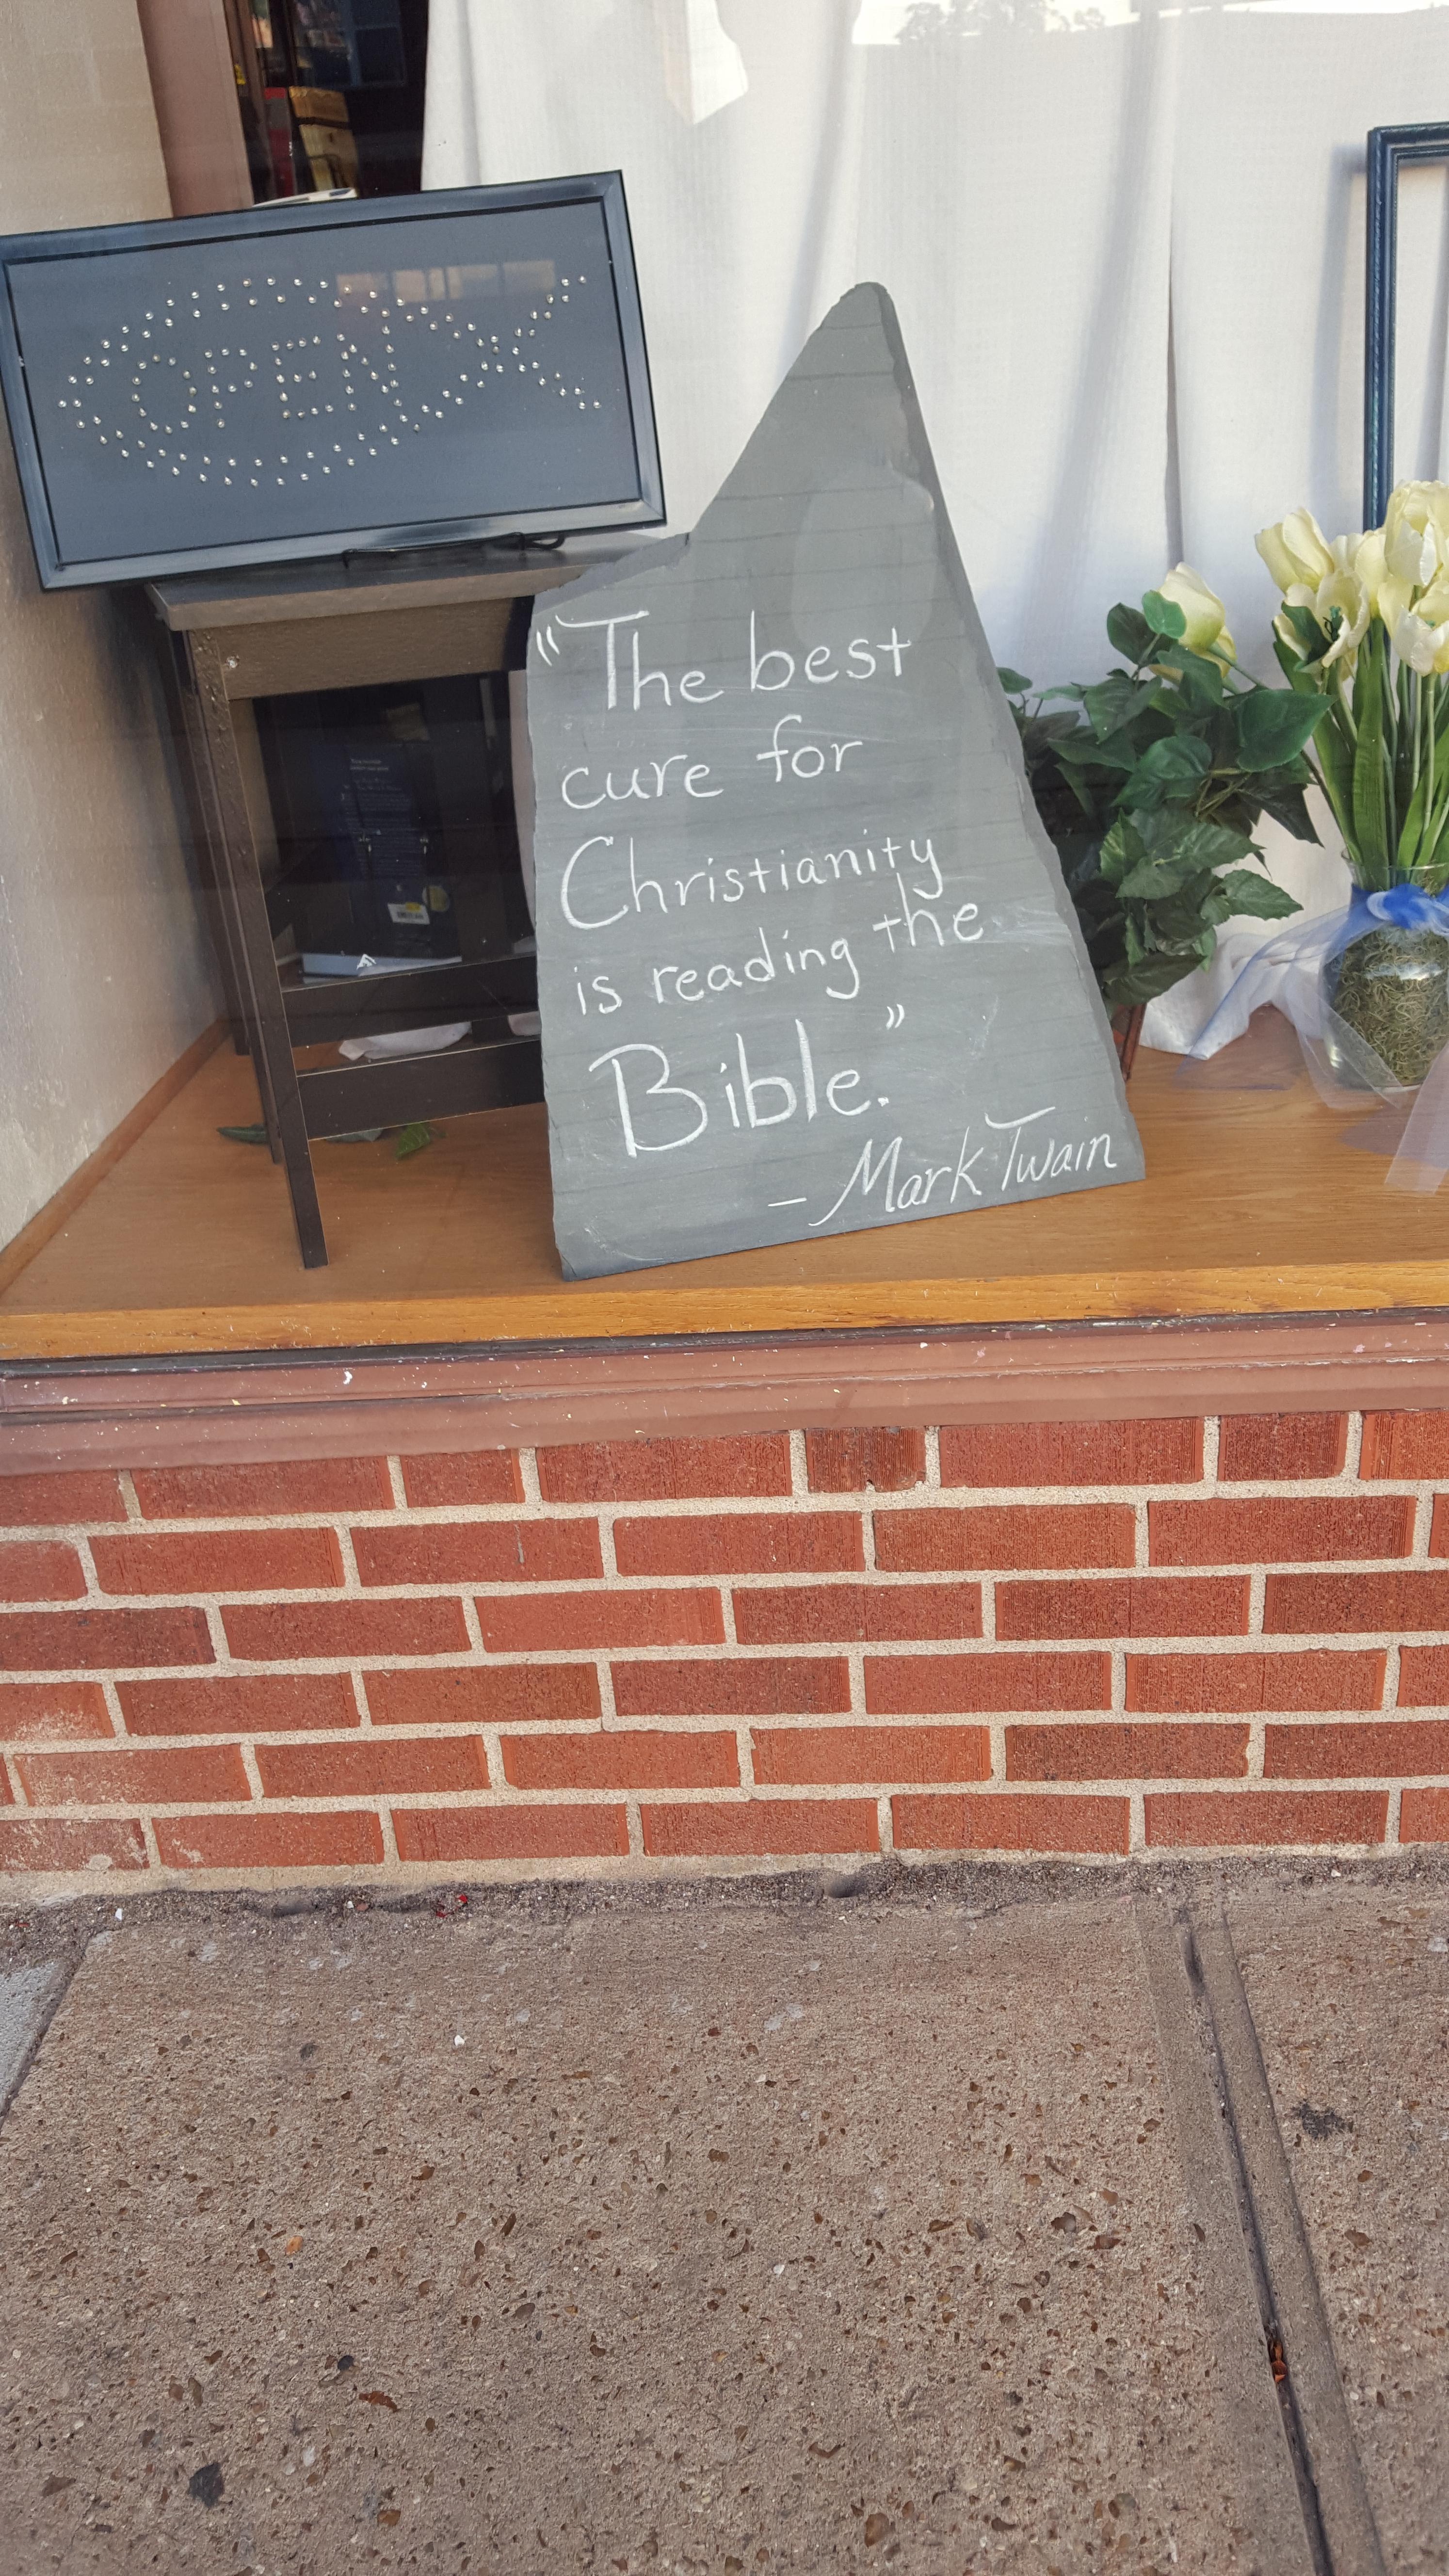 OPEN
"The best
cure for
Christianity
is reading the
Bible."
- Mark Twain